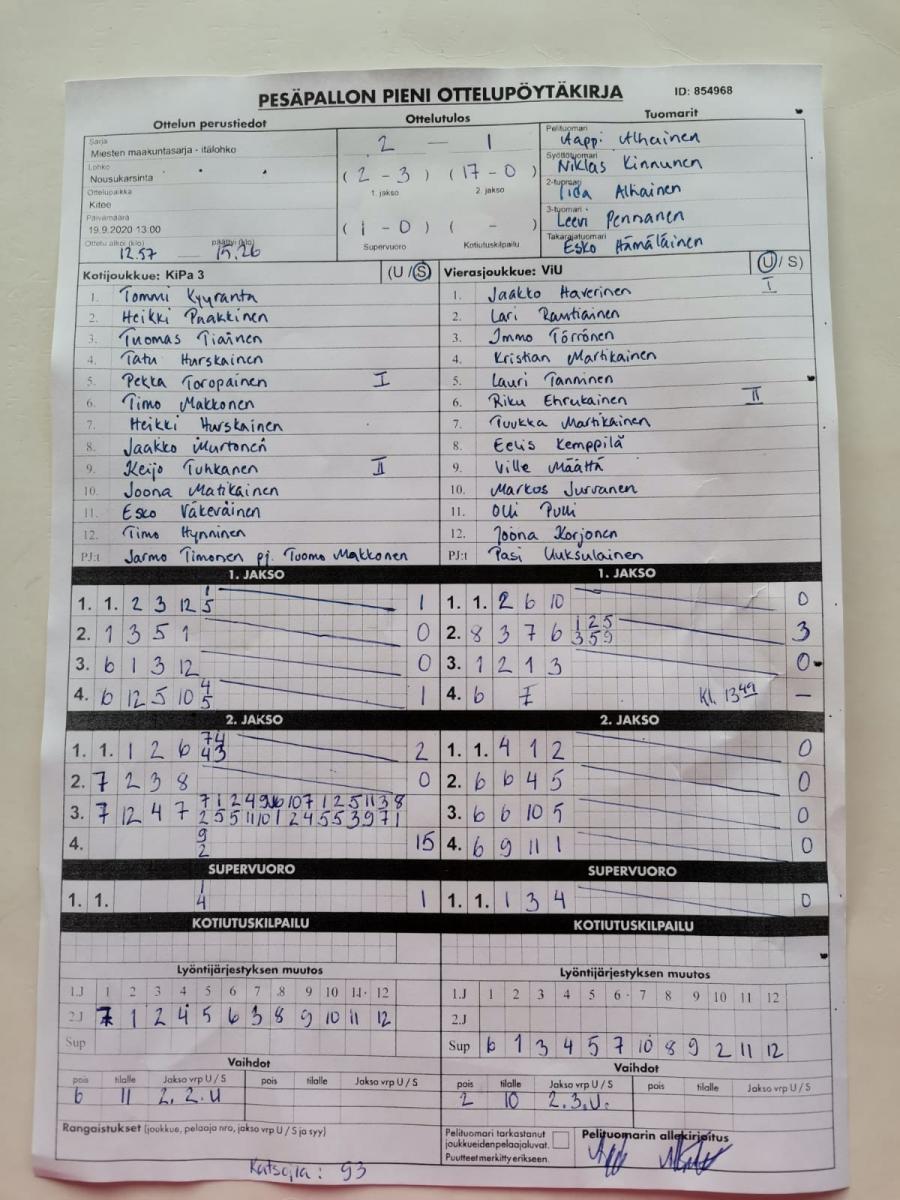 PESÄPALLON PIENI OTTELUPÖYTÄKIRJA ID: 854968
Ottelun perustiedot Ottelutulos Tuomarit
Sarja
Miesten maakuntasarja - itälohko
Lohko
Nousukarsinta
Ottelupaikka
Kitee
Päivämäärä
19.9.2020 13:00
Ottelu alkoi (klo) päättyi (klo)
12.57 15.26
2 — 1
( 2 - 3 ) ( 17 - 0 )
1. jakso 2. jakso
( 1 - 0 ) ( - )
Supervuoro Kotiutuskilpailu
Pelituomari
Aappi Alhainen
Syöttötuomari
Niklas Kinnunen
2-tuomari
Iida Alhainen
3-tuomari
Leevi Pennanen
Takarajatuomari
Esko Hämäläinen
Kotijoukkue: KiPa 3 (U / S)
1. Tommi Kyyranta
2. Heikki Paakkinen
3. Tuomas Tiainen
4. Tatu Hurskainen
5. Pekka Toropainen I
6. Timo Makkonen
7. Heikki Hurskainen
8. Jaakko Murtonen
9. Keijo Tuhkanen II
10. Joona Matikainen
11. Esko Väkeväinen
12. Timo Hynninen
PJ:t Jarmo Timonen pj. Tuomo Makkonen
Vierasjoukkue: ViU (U / S)
1. Jaakko Haverinen I
2. Lari Rautiainen
3. Immo Törrönen
4. Kristian Martikainen
5. Lauri Tanninen
6. Riku Ehrukainen II
7. Tuukka Martikainen
8. Eelis Kemppilä
9. Ville Määttä
10. Markos Jurvanen
11. Olli Pulli
12. Joona Korjonen
PJ:t Pasi Uuksulainen
1. JAKSO
1. 1. 2 3 12 1 5 1
2. 1 3 5 1 0
3. 6 1 3 12 0
4. 6 12 5 10 4 5 1
1. JAKSO
1. 1. 2 6 10 0
2. 8 3 7 6 1 2 5 3 5 9 3
3. 1 2 1 3 0
4. 6 7 Kl. 13 49 —
2. JAKSO
1. 1. 1 2 6 7 4 4 3 2
2. 7 2 3 8 0
3. 7 12 4 7
4. 9 2 15
2. JAKSO
1. 1. 4 1 2 0
2. 6 6 4 5 0
3. 6 6 10 5 0
4. 6 9 11 1 0
SUPERVUORO
1. 1. 1 4 1
SUPERVUORO
1. 1. 1 3 4 0
KOTIUTUSKILPAILU
KOTIUTUSKILPAILU
Lyöntijärjestyksen muutos
1.J 1 2 3 4 5 6 7 8 9 10 11 12
2.J 7 1 2 4 5 6 3 8 9 10 11 12
Sup
Lyöntijärjestyksen muutos
1.J 1 2 3 4 5 6 7 8 9 10 11 12
2.J
Sup 6 1 3 4 5 7 10 8 9 2 11 12
Vaihdot
pois tilalle Jakso vrp U / S pois tilalle Jakso vrp U / S
6 11 2. 2. U
Vaihdot
pois tilalle Jakso vrp U / S pois tilalle Jakso vrp U / S
2 10 2.3.U.
Rangaistukset (joukkue, pelaaja nro, jakso vrp U / S ja syy)
Katsojia: 93
Pelituomari tarkastanut
joukkueidenpelaajaluvat.
Puutteet merkitty erikseen.
Pelituomarin allekirjoitus